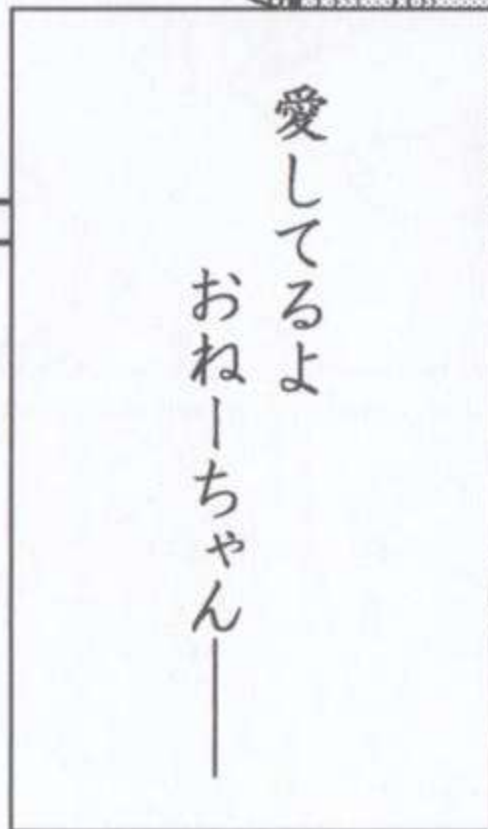 愛してるよ
おねーちゃん――